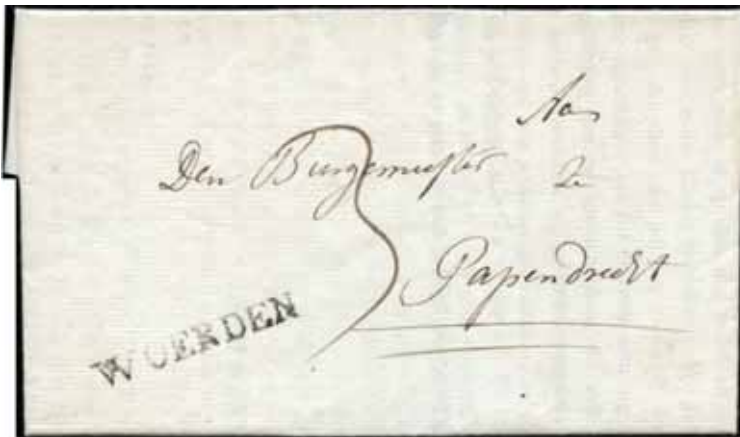 Aan
Den Burgemeester
te
Papendrecht
3
WOERDEN